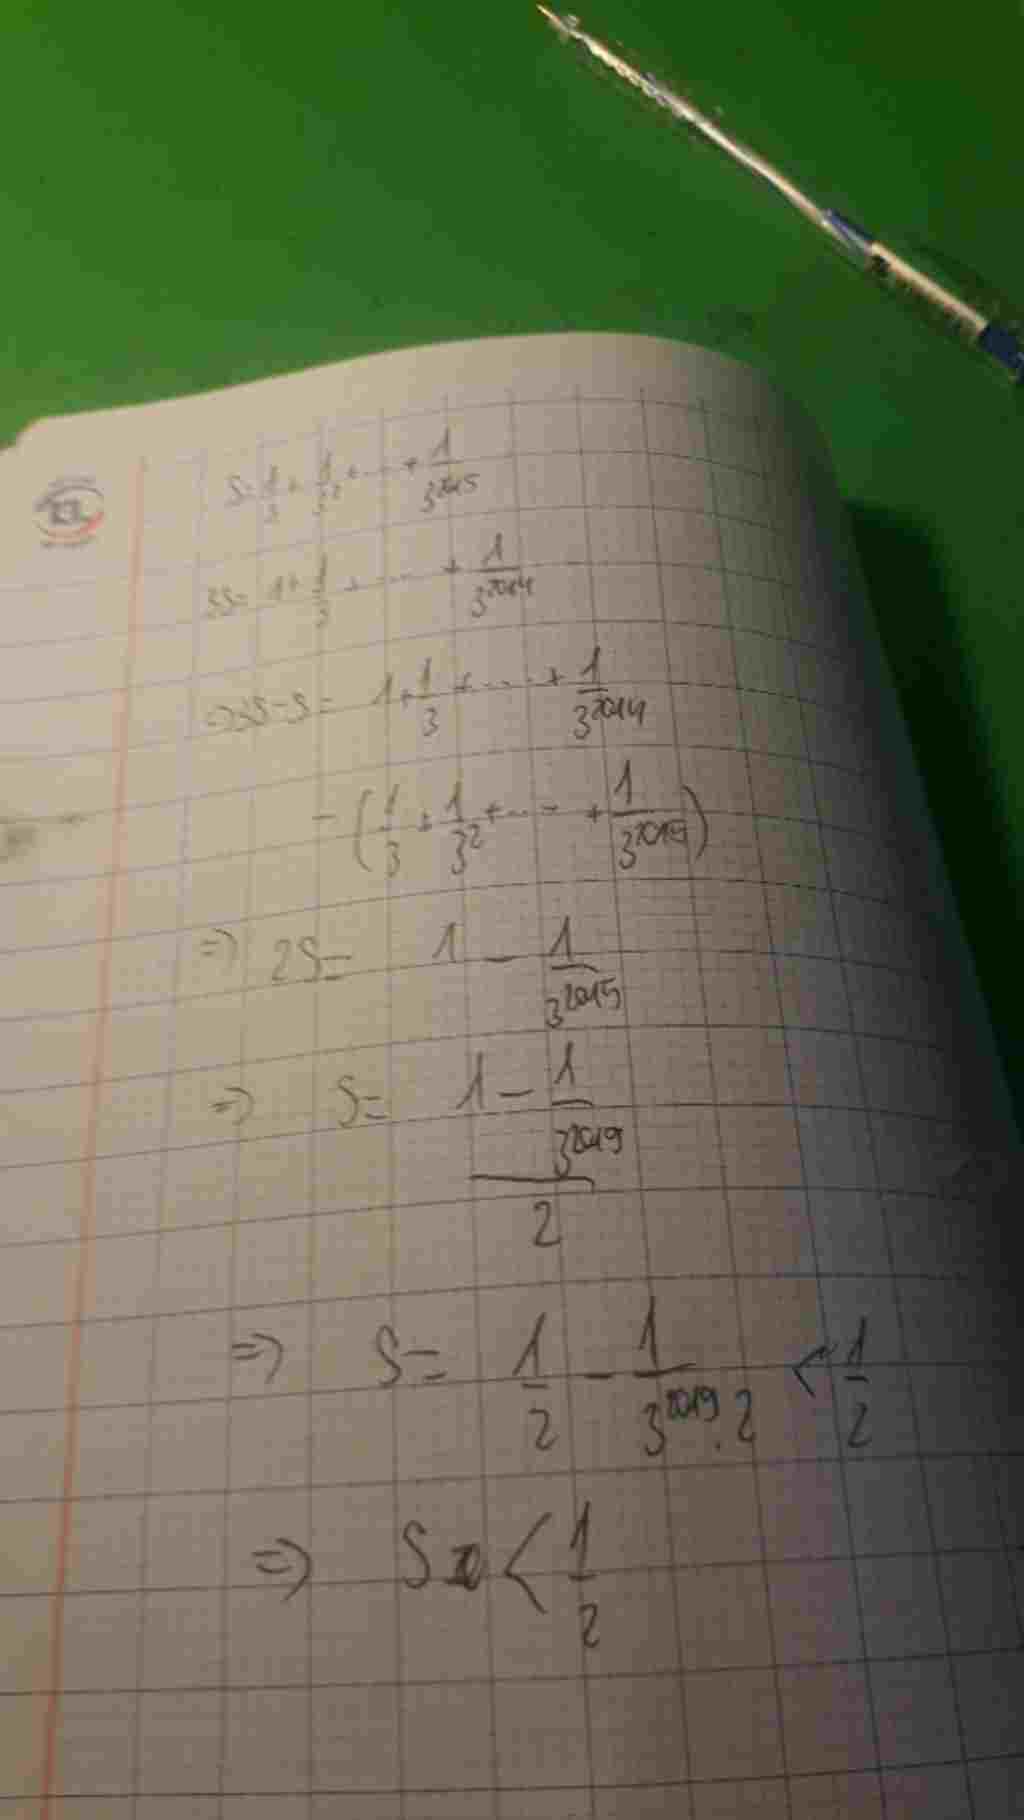 S = 1/3 + 1/3² + ... + 1/3²⁰¹⁵
3S = 1 + 1/3 + ... + 1/3²⁰¹⁴
=> 3S - S = 1 + 1/3 + ... + 1/3²⁰¹⁴
- (1/3 + 1/3² + ... + 1/3²⁰¹⁵)
=> 2S = 1 - 1/3²⁰¹⁵
=> S = (1 - 1/3²⁰¹⁹)/2
=> S = 1/2 - 1/(3²⁰¹⁹.2) < 1/2
=> S < 1/2